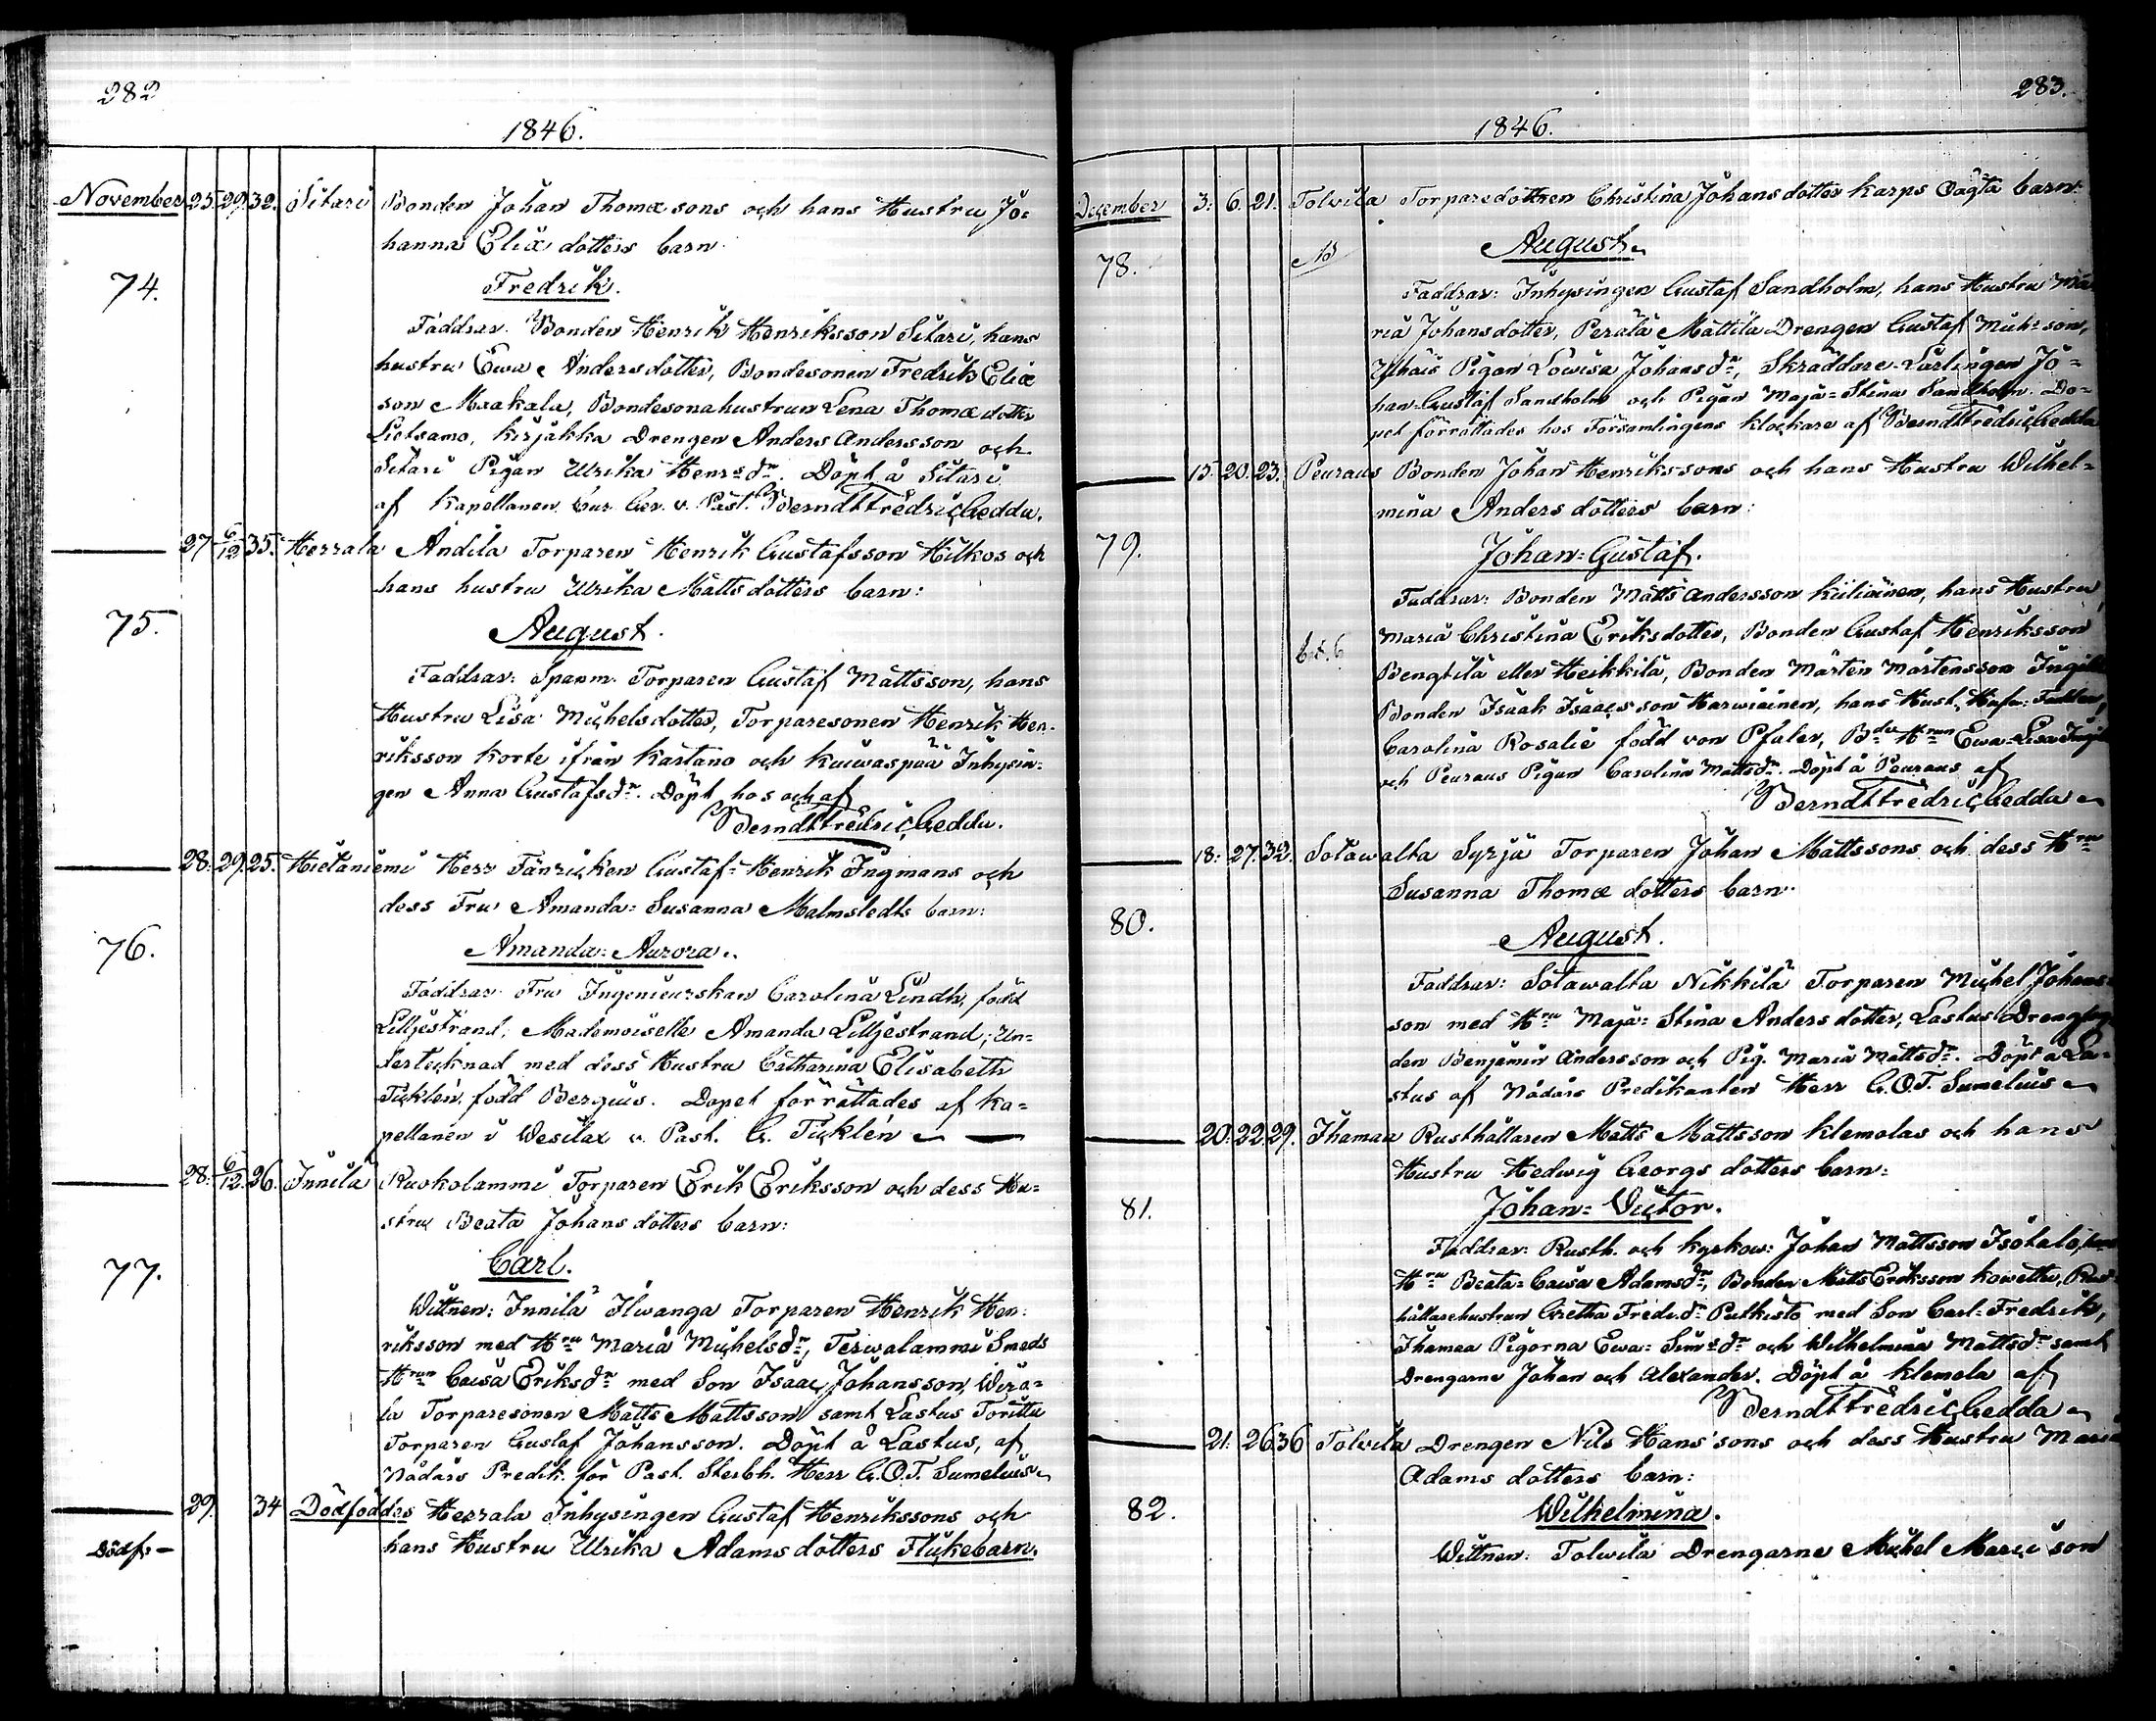 282
1846.
November 25. 29. 32. Sitari Bonden Johan Thomæ sons och hans Hustru Jo=
hanna Eliæ dotters barn
74.
Fredrik.
Faddrar. Bonden Henrik Henriksson Sitari, hans
hustru Ewa Anders dotter, Bondesonen Fredrik Eliæ
son Maakala, Bondesonahustrun Lena Thomæ dotter
Lietsamo, Kirjakka Drengen Anders Andersson och
Sitari Pigan Ulrika Henrs dr. Döpt å Sitari
af Kapellanen v. Past. Berndt Fredric Gedda.
27. 6/12 35. Herrala Andila Torparen Henrik Gustafsson Hilkos och
hans hustru Ulrika Matts dotters barn:
75.
August.
Faddrar: Spanm. Torparen Gustaf Mattsson, hans
Hustru Lisa Michels dotter, Torparesonen Henrik Hen-
riksson Korte ifrån Kartano och Kuiwaspää Inhysin=
gen Anna Gustafs dr. Döpt hos och af
Berndt Fredric Gedda.
28. 29. 25. Hietaniemi Herr Fänricken Gustaf=Henrik Ingmans och
dess Fru Amanda=Susanna Malmstedts barn:
76.
Amanda=Aurora.
Faddrar Fru Ingenieurskan Carolina Lindh, född
Lilljestrand, Mademoiselle Amanda Lilljestrand, Un=
dertecknad med dess Hustru Catharina Elisabeth
Ticklén, född Bergius. Dopet förrättades af Ka=
pellanen i Wesilax v. Past. G. Ticklén
28. 6/12. 26. Innila Ruokolammi Torparen Erik Eriksson och dess Hu=
stru Beata Johans dotters barn:
77.
Carl.
Wittnen: Innila Ilwanga Torparen Henrik Hen=
riksson med Hru Maria Michels dr, Terwalammi Smeds
Hrun Caisa Eriks dr med Son Isaac Johansson, Wirä=
lä Torparesonen Matts Mattsson samt Lastus Torittu
Torparen Gustaf Johansson. Döpt å Lastus, af
Nådårs Predik. för Past. Sterbh. Herr G.O.T. Sumelius
29. 34 Dödföddes Herrala Inhysingen Gustaf Henrikssons och
Dödf:
hans Hustru Ulrika Adams dotters Flickebarn.
283.
1846.
December 3. 6. 21. Tolvila Torparedottren Christina Johansdotter Karps Oägta barn:
78.
August.
Faddrar: Inhysingen Gustaf Sandholm, hans Hustru Ma
ria Johansdotter, Perälä Mattila Drengen Gustaf Mich: son,
Pigan Lowisa Johans dr, Skräddare-Lärlingen Jo=
han-Gustaf Sandholm och Pigan Maja=Stina Sandholm. Do=
pet förrättades hos Församlingens klockare af Berndt Fredric Gedda
15. 20. 23. Peuraus Bonden Johan Henrikssons och hans Hustru Wilhel=
mina Anders dotters barn:
79.
Johan=Gustaf.
Faddrar: Bonden Matts Andersson Kiiliäinen, hans Hustru
Maria Christina Eriksdotter, Bonden Gustaf Henriksson
Bengtilä eller Heikkilä, Bonden Mårten Mårtensson
Bonden Isaak Isaacs son Harwiainen, hans Hust.
Carolina Rosalie född von Pfaler, Bdes Hrun Ewa=Lisa
och Peuraus Pigan Carolina Matts dr. Döpt å Peuraus af
Berndt Fredric Gedda
18. 27. 33. Sotawalta Syrjä Torparen Johan Mattssons och dess Hru
Susanna Thomæ dotters barn
80.
August.
Faddrar: Sotawalta Nikkilä Torparen Michel Johans
son med Hru Maja=Stina Anders dotter, Lastus
den Benjamin Andersson och Pig. Maria Matts dr. Döpt å La=
stus af Nådårs Predikanten Herr G.O.T. Sumelius
20. 22. 29. Ihamaa Rusthållaren Matts Mattsson Klemolas och hans
Hustru Hedwig Georgs dotters barn:
81.
Johan=Victor.
Faddrar: Rusth. och Kyrkow: Johan Mattsson Isotalo,
Hru Beata=Caisa Adams dr, Bonden Matts Eriksson
hållarehustrun Gretha Fredr. dr Putkisto med Son Carl=Fredrik,
Ihamaa Pigorna Ewa=Sims dr och Wilhelmina Matts dr samt
Drengarne Johan och Alexander. Döpt å Klemola af
Berndt Fredric Gedda
21. 26 36 Tolvila Drengen Nils Hans'sons och dess Hustru Maria
Adams dotters barn:
82.
Wilhelmina.
Wittnen: Tolvila Drengarne Michel Marci son